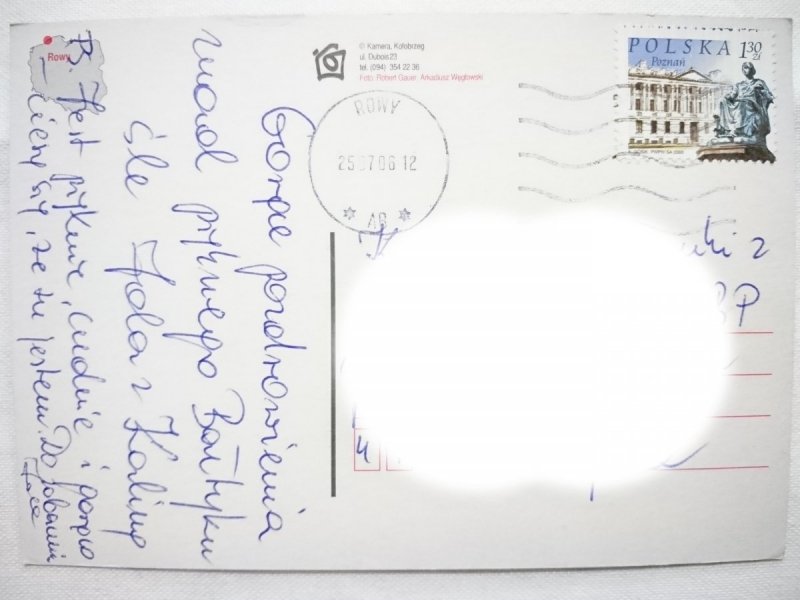 Rowy
© Kamera, Kołobrzeg
ul. Dubois 23
tel. (094) 354 22 36
Foto: Robert Gauer, Arkadiusz Węgłowski
POLSKA 1,30 zł
Poznań
PWPW SA 2005
ROWY
25.07.06.12
AB
Gorące pozdrowienia
znad pięknego Bałtyku
śle Jola z
B. Jest pięknie, cudnie i gorąco
– cieszę się, że tu jestem. Do zobaczenia
Jola
z
4